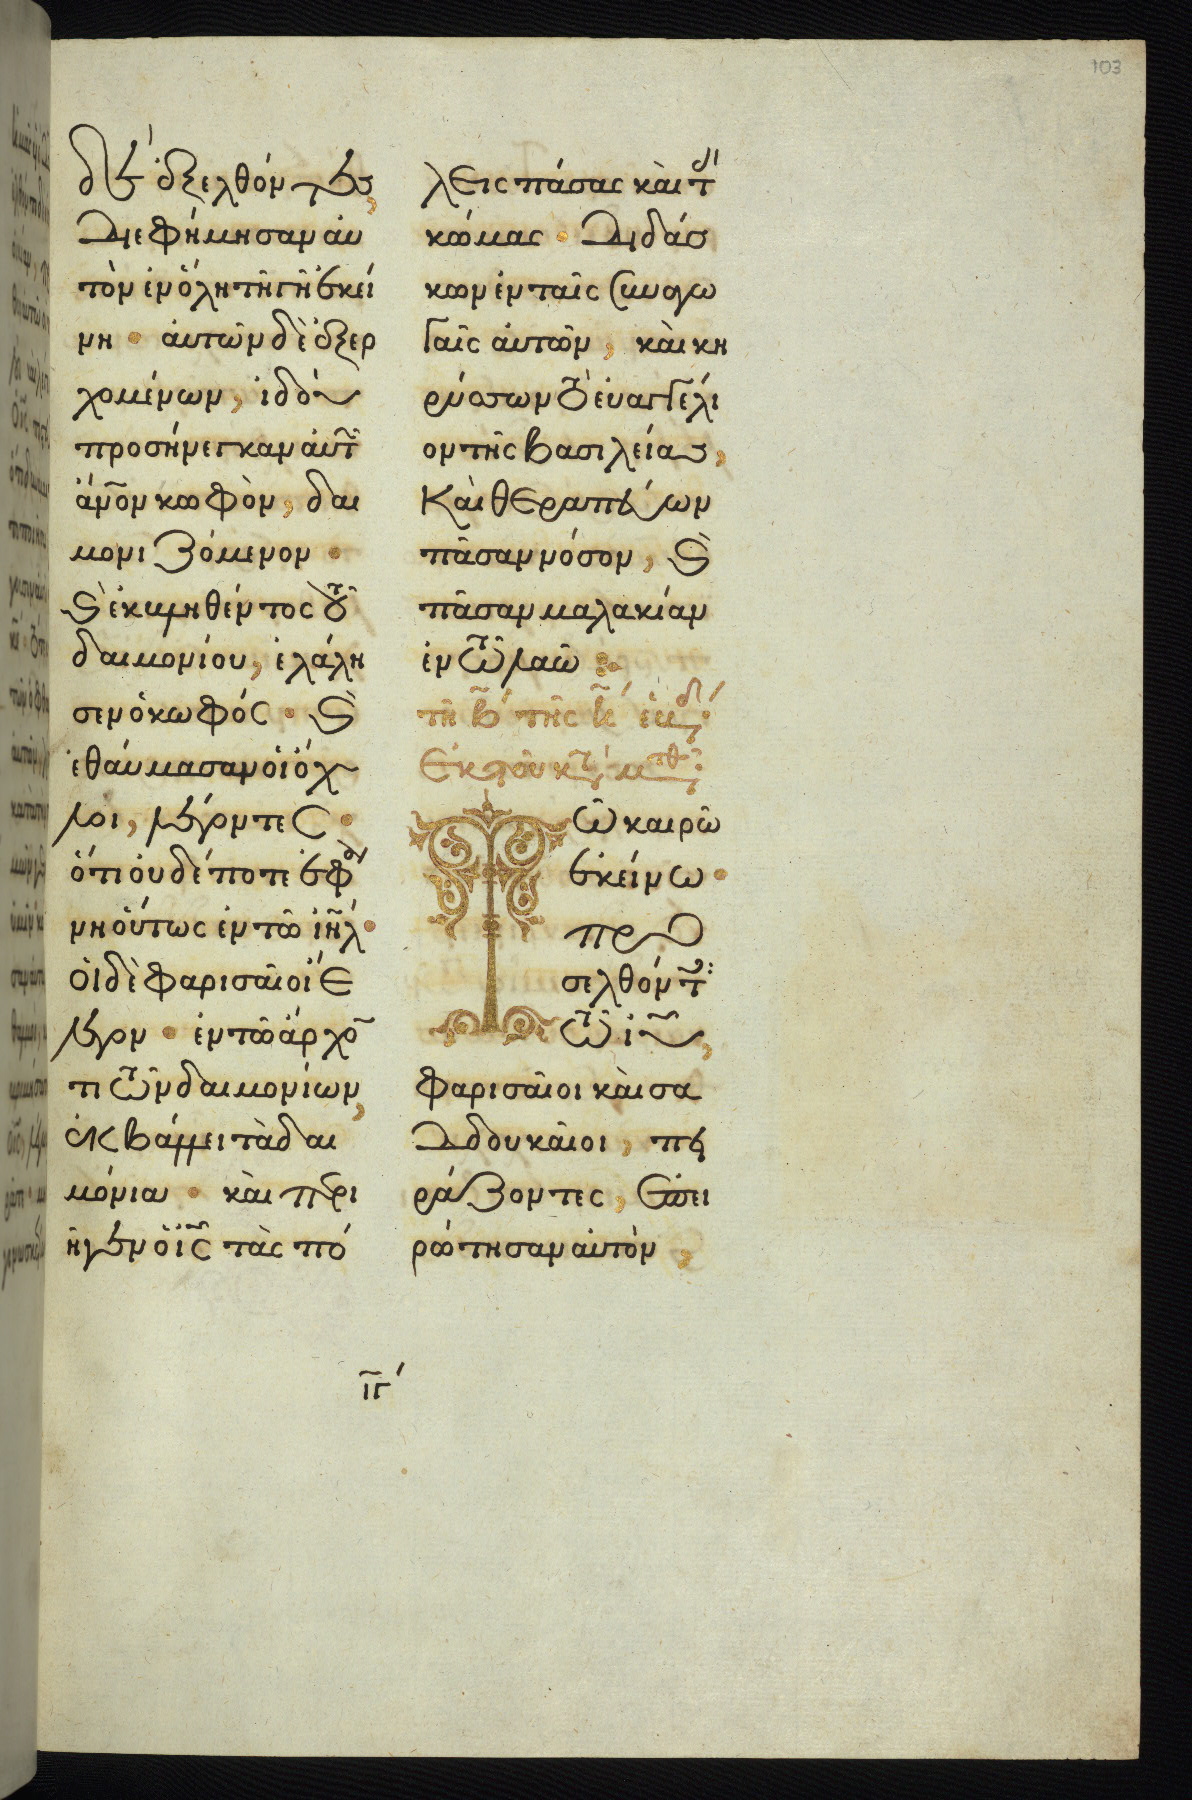 103
δὲ ἐξελθόντες,
Διεφήμησαν αὐ
τὸν ἐν ὅλη τῆ γῆ ἐκεί
νη · αὐτῶν δὲ ἐξερ
χομένων, ἰδοὺ
προσήνεγκαν αὐτ͂
ἄν͂ον κωφὸν, δαι
μονιζόμενον ·
Ϛ̀ ἐκβληθέντος τοῦ
δαιμονίου, ἐλάλη
σεν ὁ κωφός · Ϛ̀
ἐθαύμασαν οἱ ὄχ
λοι, λέγοντες ·
ὅτι οὐδέποτε ἐφά
νη οὕτως ἐν τῶ ἰῆλ ·
Οἱ δὲ φαρισαῖοι ἔ
λεγον · ἐν τῶ ἄρχο͂
τι τῶν δαιμονίων,
ἐκβάλλει τὰ δαι
μόνια · καὶ περι
ῆγεν ὁ ἶς τὰς πό
λεις πάσας καὶ τ̀
κώμας · Διδάσ
κων ἐν ταῖς συναγω
γαῖς αὐτῶν, καὶ κη
ρύσσων τὸ εὐαγγέλι
ον τῆς βασιλείας,
Καὶ θεραπεύων
πᾶσαν νόσον, Ϛ̀
πᾶσαν μαλακίαν
ἐν τῶ λαῶ :·
Εκ τοῦ κτ̀ μτθ:
Τῶ καιρῶ
ἐκείνω ·
προ
σελθόντ͂:
τῶ ἶυ,
φαρισαῖοι καὶ σα
Δδουκαῖοι, πει
ράζοντες, ἐπε
ρώτησαν αὐτὸν,
ιγ͂ʹ